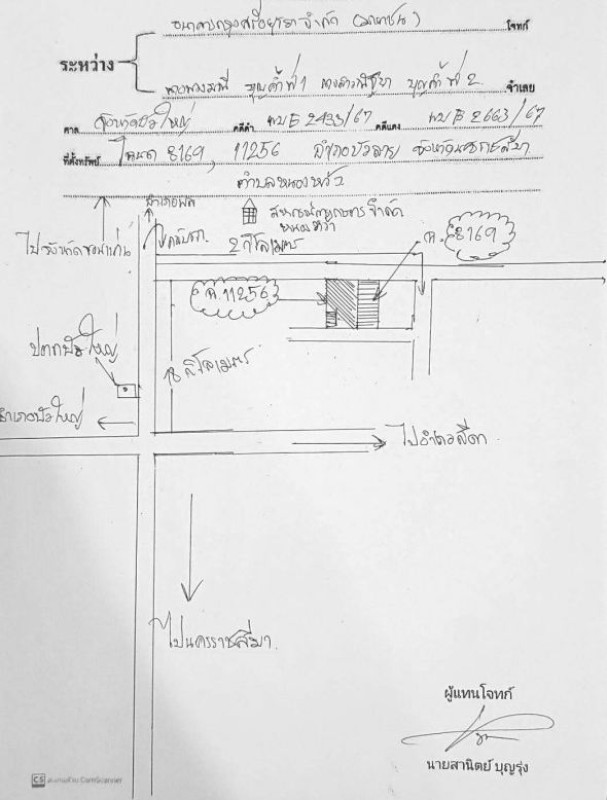 ธนาคารกรุงศรีอยุธยาจำกัด (มหาชน) โจทก์
ระหว่าง
บุญค้ำ ที่1 บุญค้ำ ที่ 2 จำเลย
ศาล จังหวัดบัวใหญ่ คดีดำ ผบE 2433/67 คดีแดง ผบE 2663/67
ที่ตั้งทรัพย์ โฉนด 8169, 11256 อำเภอบัวลาย จังหวัดนครราชสีมา
ตำบลหนองหว้า
อำเภอพล
สหกรณ์การเกษตร จำกัด
หนองหว้า
ไปจังหวัดขอนแก่น
กลับรถ
2 กิโลเมตร
ฉ. 8169
ฉ. 11256
ปตท บัวใหญ่
18 กิโลเมตร
อำเภอบัวใหญ่
ไปอำเภอสีดา
ไปนครราชสีมา
ผู้แทนโจทก์
นายสานิตย์ บุญรุ่ง
CS สแกนด้วย CamScanner